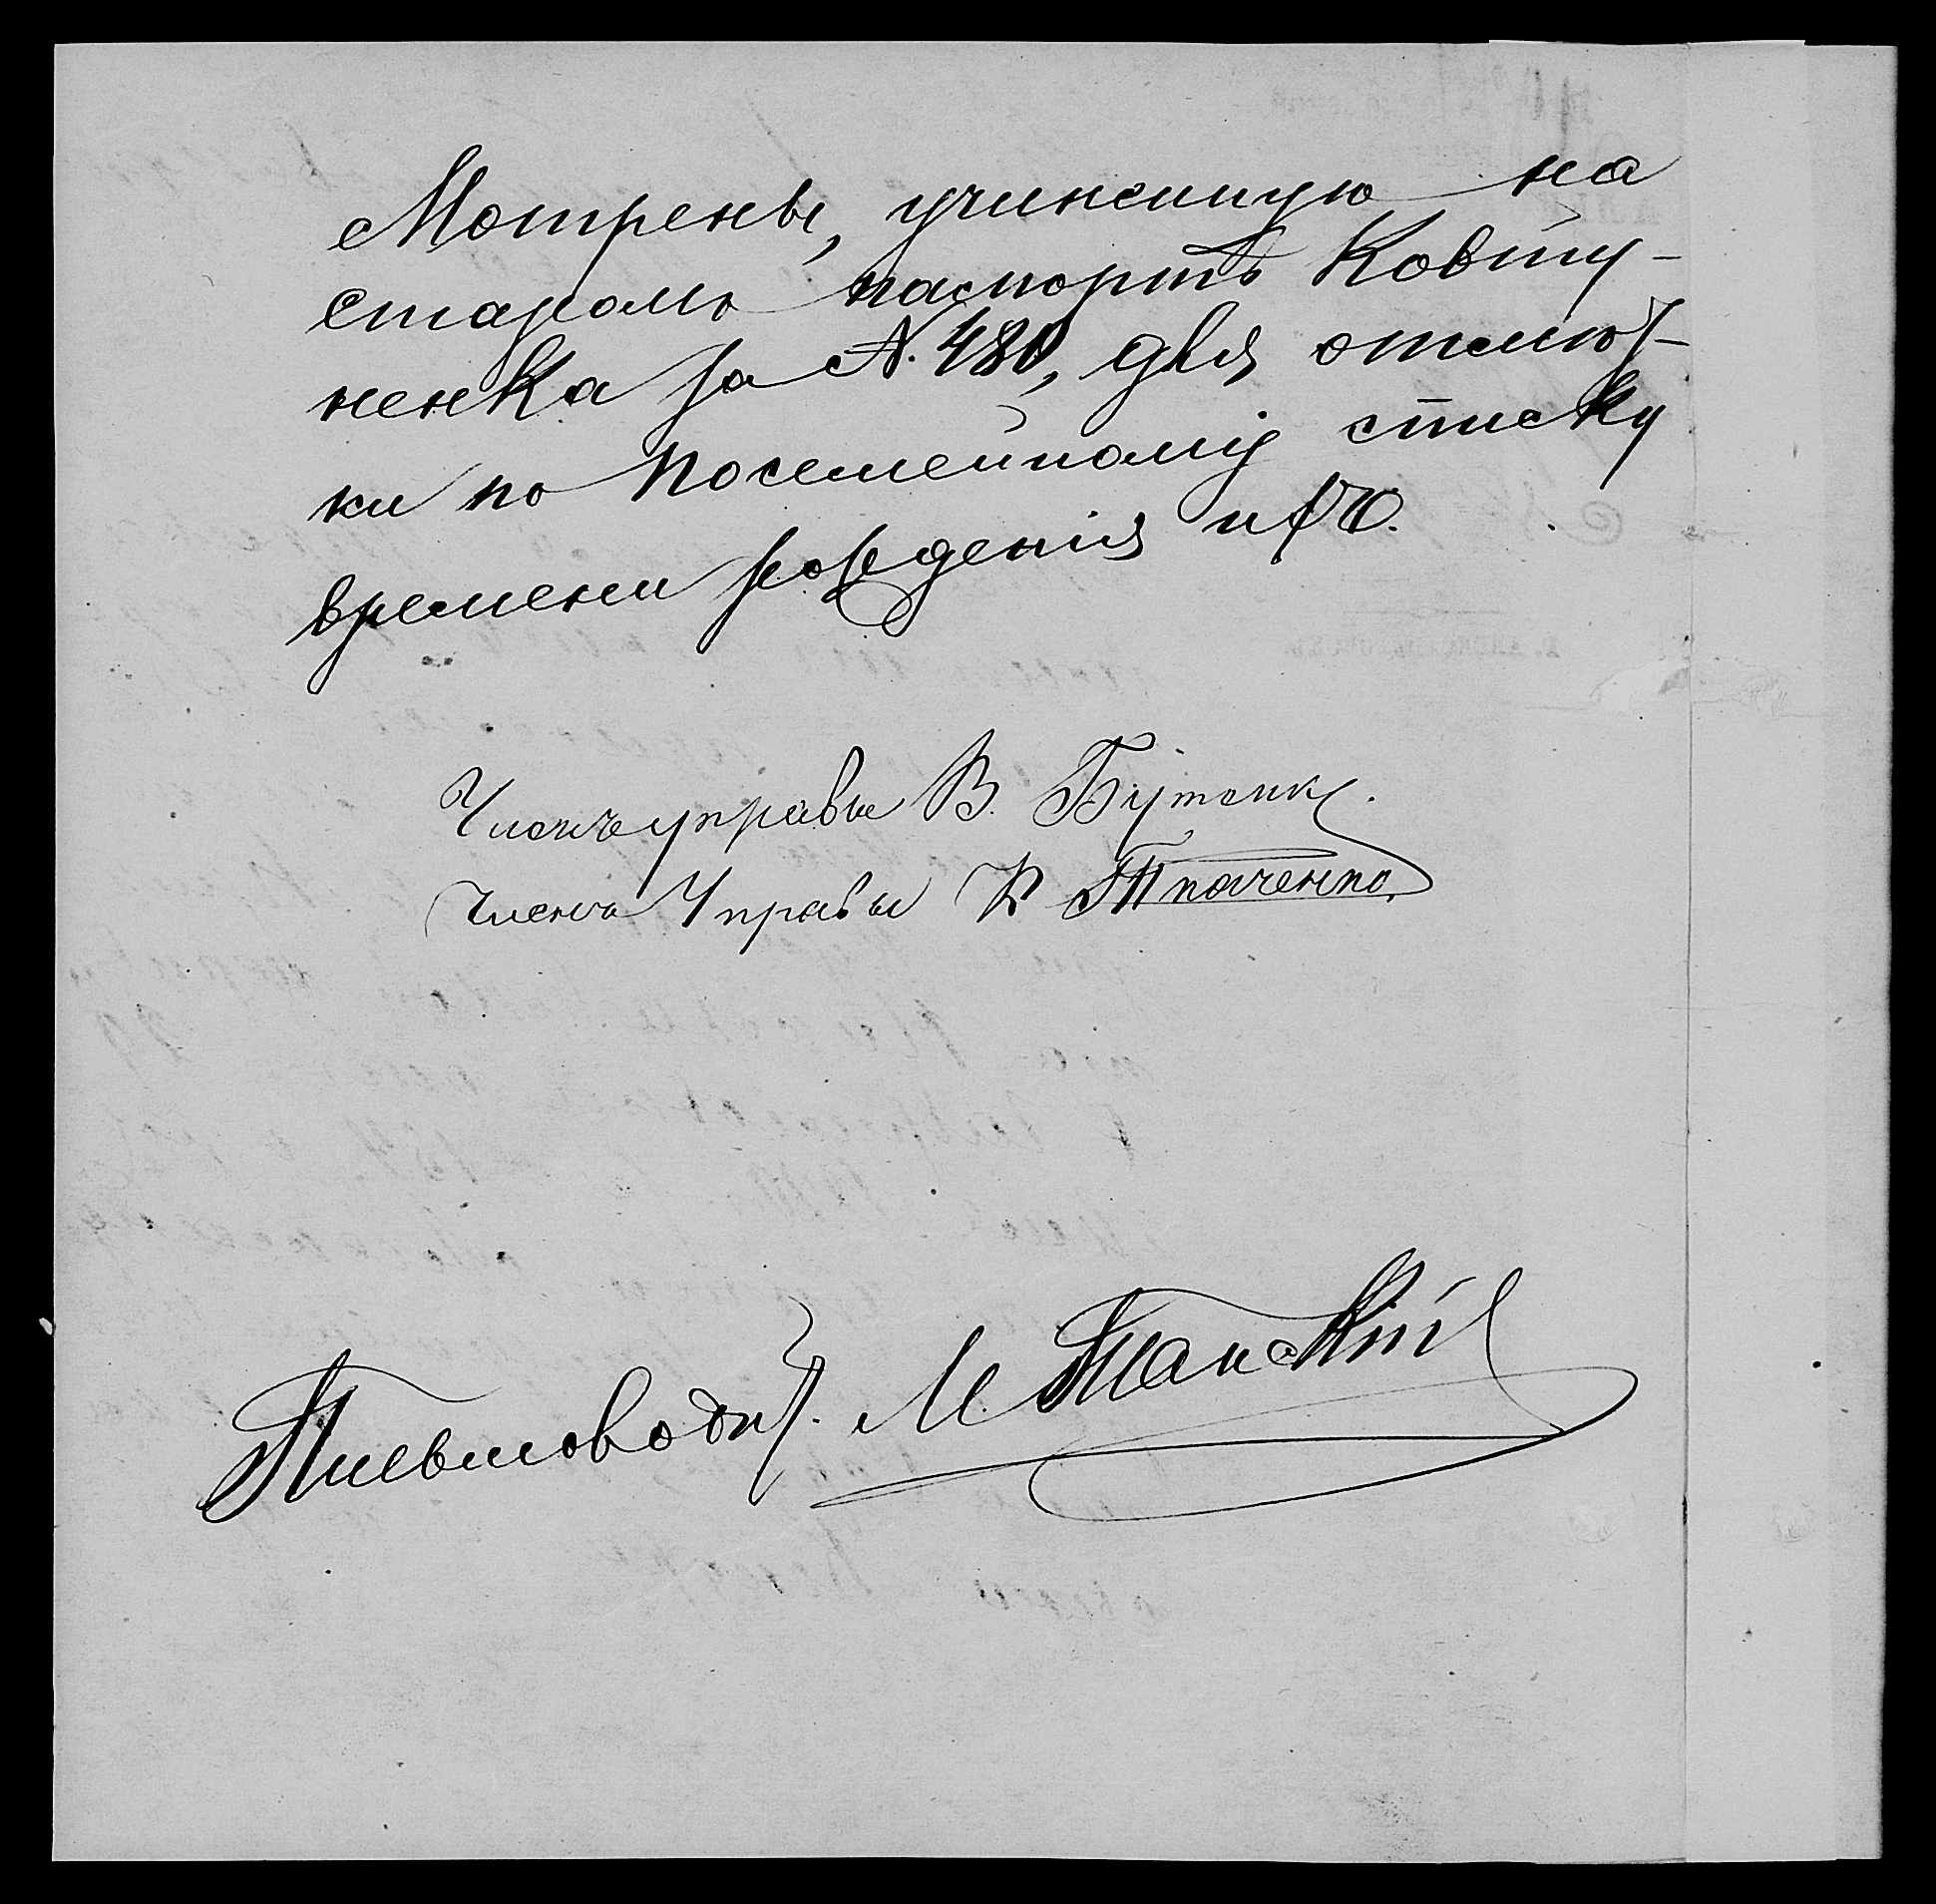 Мотрены, учиненную на
старомъ паспортѣ Ковту-
ненка за №. 480, для отмѣт-
ки по посемейному списку
времени рожденія
Членъ управы В. Бутенко.
Членъ Управы К Ткаченко
Письмоводит. М. Танскій